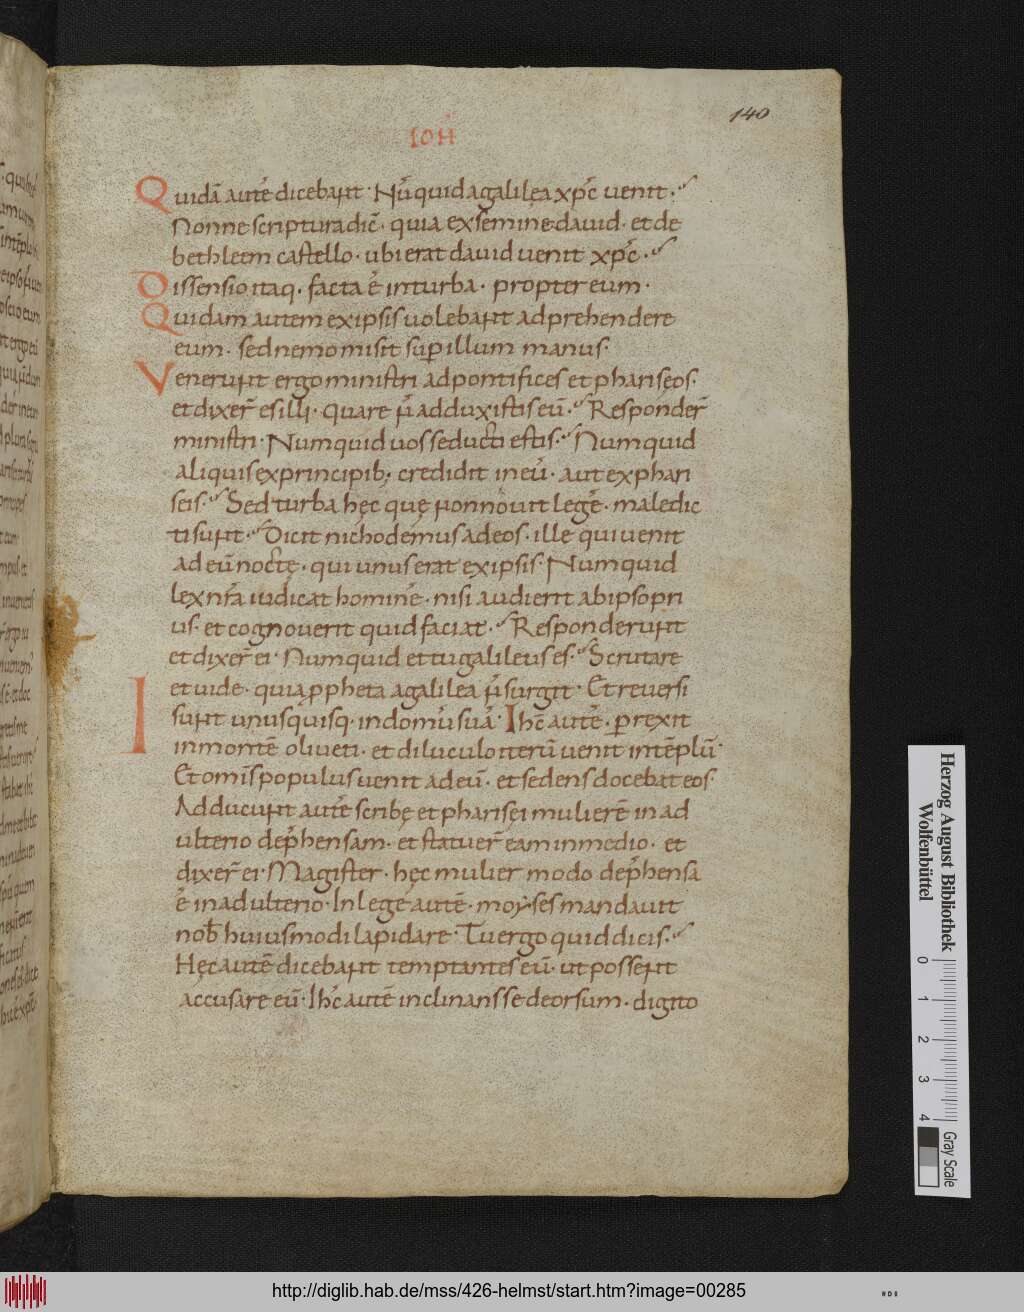 140
IOH̄
Quidā autē dicebant · Nū́quid agalilea xp̄c uenit ·
Nonne scriptura dic̄ · quia exsemine dauid · et de
bethleem castello · ubi erat dauid uenit xp̄c ·
Dissensio itaq· facta ē inturba · propter eum ·
Quidam autem exipsis uolebant adprehendere
eum · sed nemo misit sup illum manus ·
Venerunt ergo ministri ad pontifices et phariseos ·
et dixer̄ eis illi · quare n̄ adduxistis eū · Responder̄
ministri · Numquid uos seducti estis · Numquid
aliquis exprincipib; credidit in eū · aut exphari
seis · Sed turba hęc quę non nouit legē · maledic
ti sunt · Dicit nichodemus ad eos · ille qui uenit
ad eū noctę · qui unus erat exipsis · Numquid
lex nr̄a iudicat hominē · nisi audierit ab ipso pri
us · et cognouerit quid faciat · Responderunt
et dixer̄ ei · Numquid et tu galileus es · Scrutare
et uide · quia ppheta agalilea n̄ surgit · Et reuersi
sunt unusquisq· in domū suā · Ihc̄ autē · perrexit
in montē oliueti · et diluculo iterū uenit intēplū ·
Et omis populus uenit ad eū · et sedens docebat eos ·
Adducunt autē scribę et pharisei mulierē in ad
ulterio dep̄hensam · et statuer̄ eam in medio · et
dixer̄ ei · Magister · hęc mulier modo dep̄hensa
ē in adulterio · In lege autē · moyses mandauit
nob̄ huiusmodi lapidare · Tu ergo quid dicis ·
Hęc autē dicebant temptantes eū · ut possent
accusare eū · Ihc̄ autē inclinans se deorsum · digito
Herzog August Bibliothek
Wolfenbüttel
0 1 2 3 4
Gray Scale
http://diglib.hab.de/mss/426-helmst/start.htm?image=00285